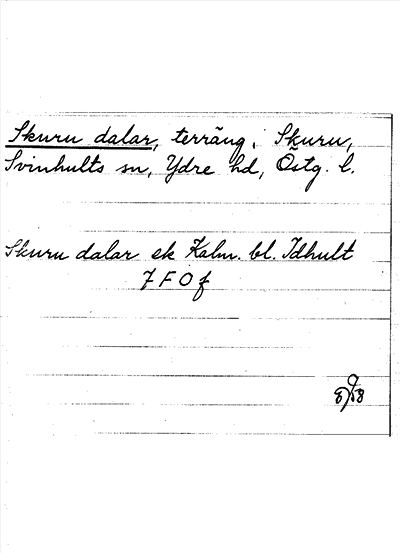 Skuru dalar, terräng, Skuru,
Svinhults sn, Ydre hd, Östg. l.
Skuru dalar ek Kalm. bl. Idhult
7 F O f